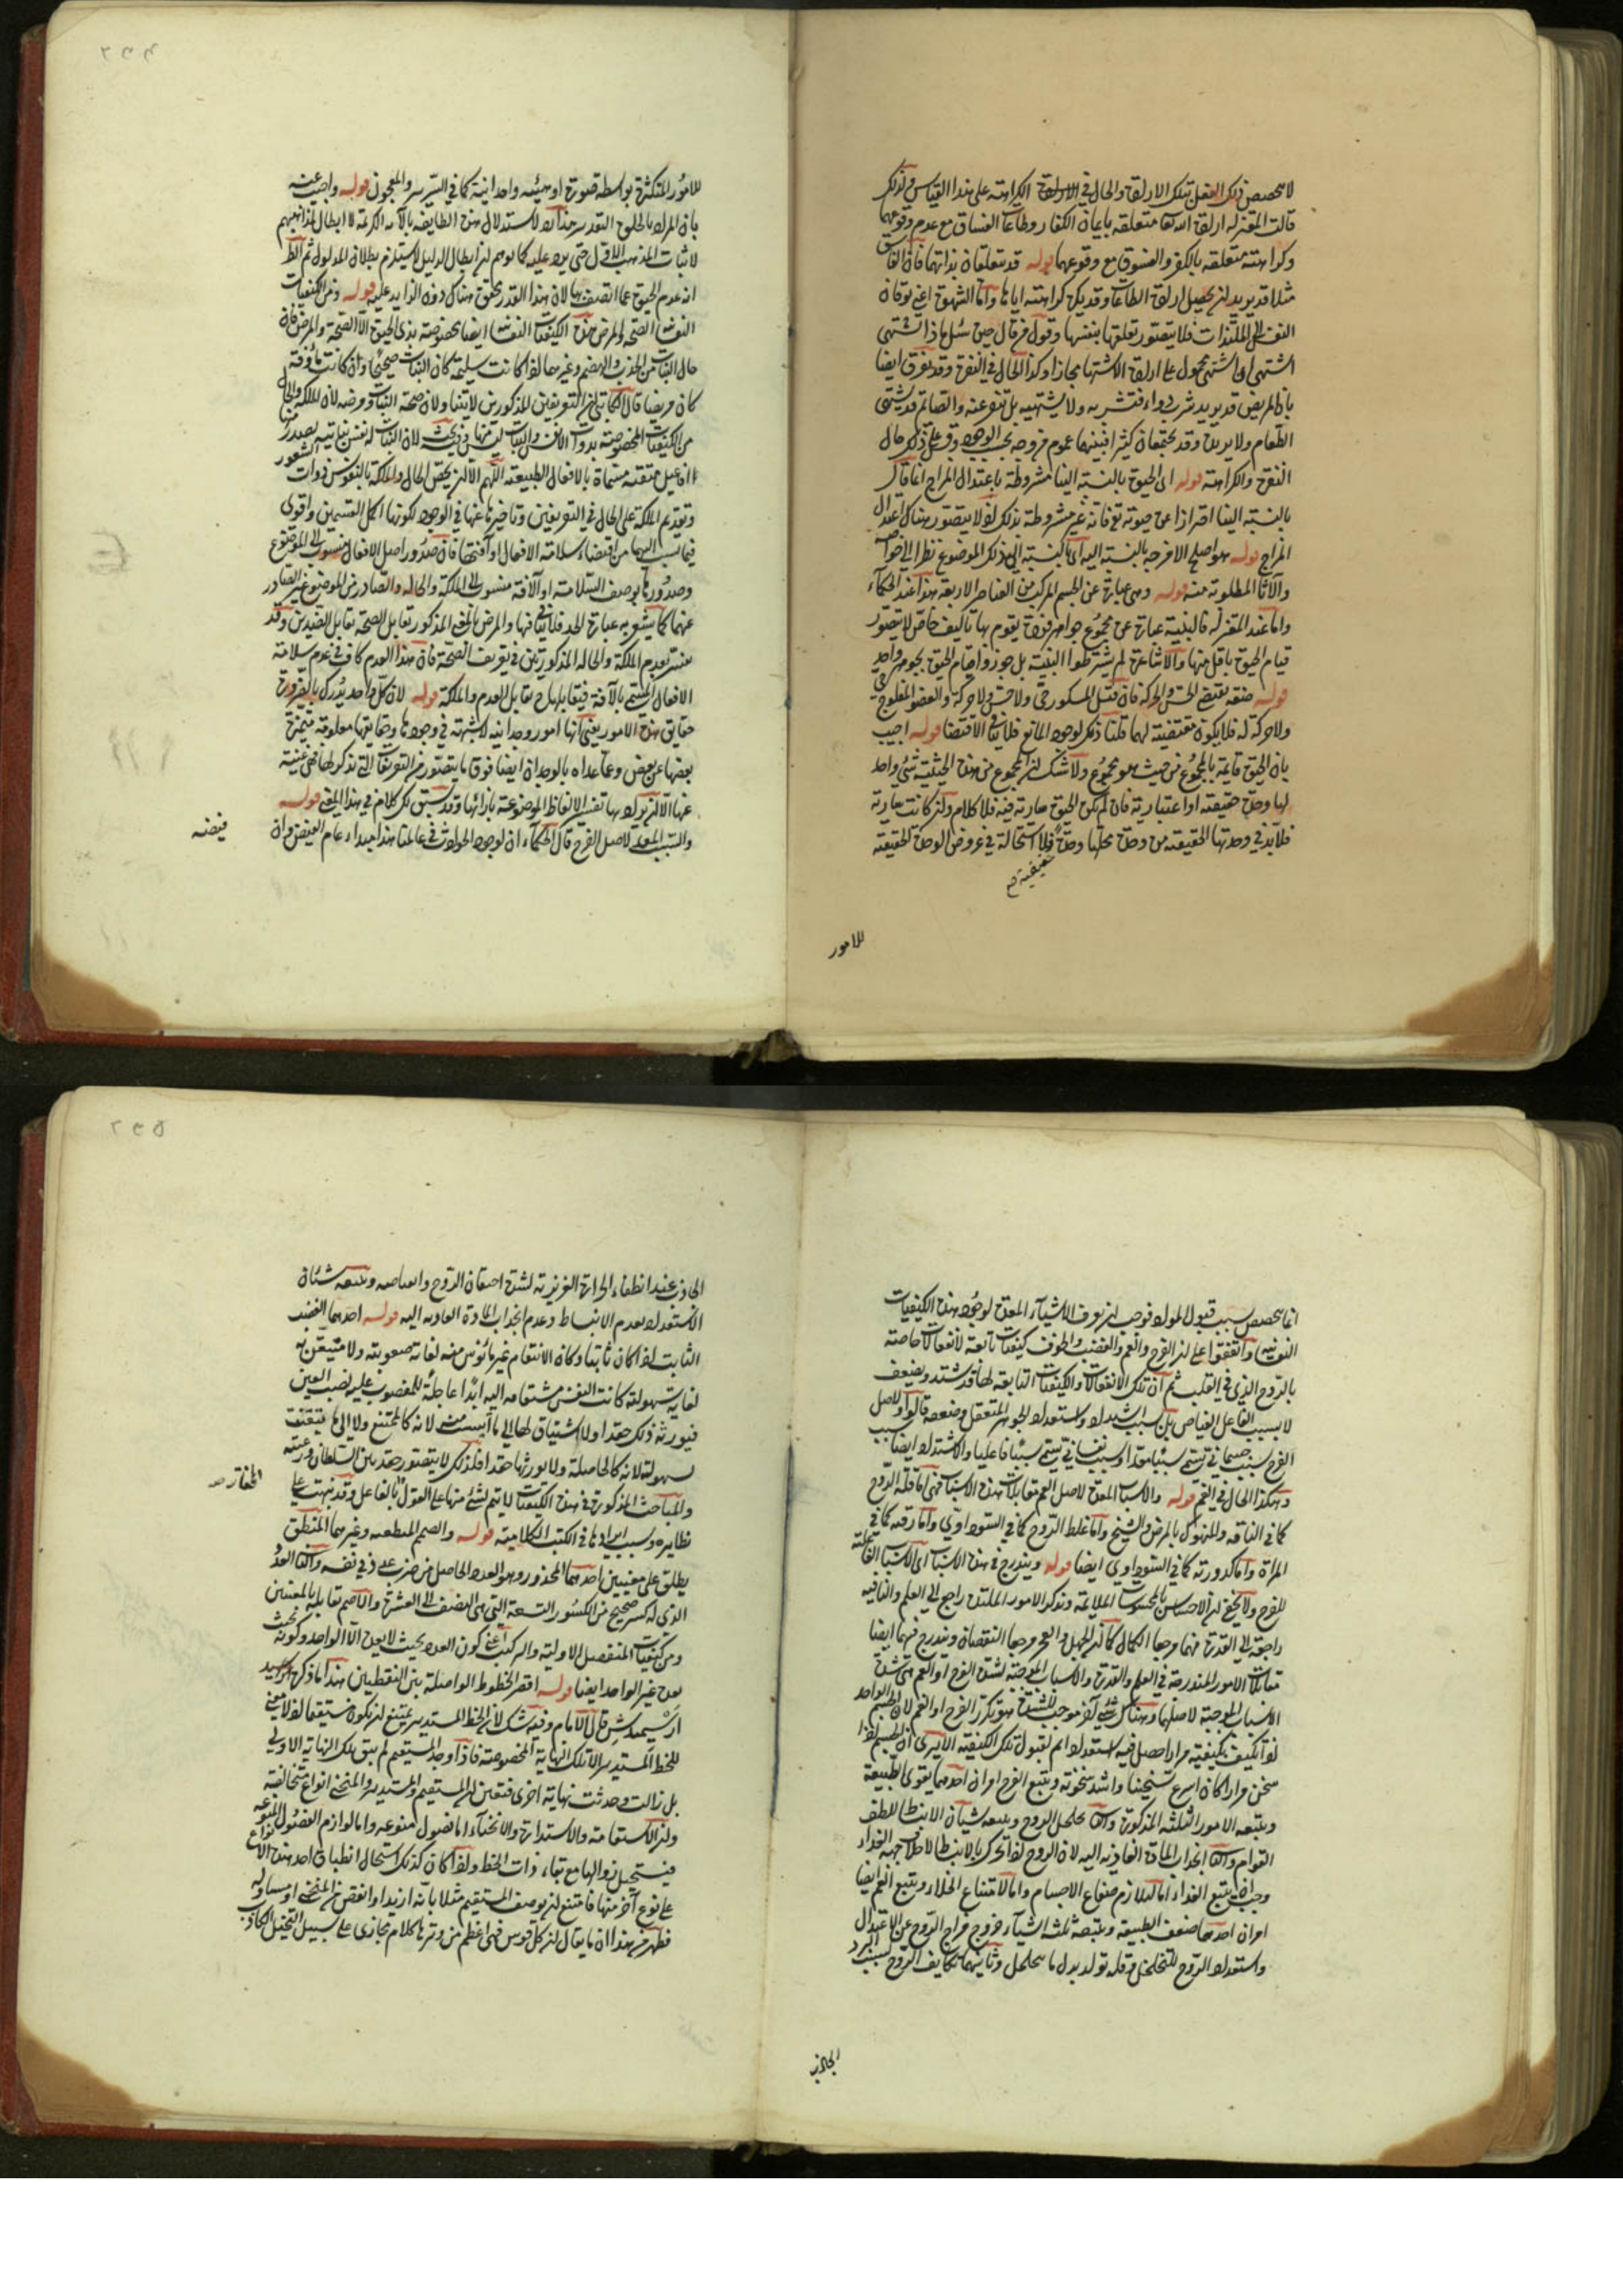 لا تخصيص ذلك الفعل بتلك الارادة والحال في الكراهة على هذا القياس ولذلك
قالت المعتزلة ارادة الله تعا متعلقة بايمان الكفار وطاعات الفساق مع عدم وقوعهما
وكراهته متعلقة بالكفر والفسوق مع وقوعهما قوله قد تتعلقان بذاتهما فان الفاسق
مثلا قد يريد ان يحصل ارادة الطاعات وقد يكره كراهته اياها واما الشهوة اعني توقان
النفس الى المستلذات فلا يتصور تعلقها بنفسها وقول من قال حين سئل ماذا تشتهي
اشتهي ان اشتهي محمول على ارادة الاشتهاء مجازا وكذا الحال في النفرة وقد يفرق ايضا
بان المريض قد يريد شرب دواء فيشربه ولا يشتهيه بل يتنفر عنه والصائم قد يشتهي
الطعام ولا يريده وقد يجتمعان كثيرا فبينهما عموم من وجه بحسب الوجود وقس على ذلك حال
النفرة والكراهة قوله اي الحيوة بالنسبة الينا مشروطة باعتدال المزاج انما قال
بالنسبة الينا احترازا عن حيوته تع فانها غير مشروطة بذلك اذ لا يتصور هناك اعتدال
المزاج قوله هو اصلح الامزجة بالنسبة اليه اي بالنسبة الى ذلك الموضوع نظرا الى خواصه
والآثار المطلوبة منه قوله وهي عبارة عن الجسم المركب من العناصر الاربعة هذا عند الحكماء
واما عند المعتزلة فالبنية عبارة عن مجموع جواهر فردة يقوم بها تأليف خاص لا يتصور
قيام الحيوة باقل منها والاشاعرة لم يشترطوا البنية بل جوزوا قيام الحيوة بجوهر واحد
قوله صفة تقتضي الحس والحركة فان قيل المسكور حي ولا حس ولا حركة والعضو المفلوج حي
ولا حركة له فلا يكون مقتضية لهما قلنا ذلك لوجود المانع فلا ينافي الاقتضاء قوله اجيب
بان الحيوة قايمة بالمجموع من حيث هو مجموع ولا شك ان المجموع من هذه الحيثية شيء واحد
لها وحدة حقيقة او اعتبارية فان لم تكن الحيوة سارية فيه فلا كلام وان كانت سارية
فلا بد في وحدتها الحقيقية من وحدة محلها وحدة فلا استحالة في عروض الوحدة الحقيقة
حقيقية صح
للامور
للامور المتكثرة بواسطة صورة او هيئة وحدانية كما في السرير والمعجون قوله واجيب عنه
بان المراد بالخلق التقدير هذا رد لاستدلال هذه الطايفة بالآية الكريمة لا ابطال لمذهبهم
لاثبات المذهب الاول حتى يرد عليه كما توهم ان ابطال الدليل لا يستلزم بطلان المدلول ثم الظ
انه عدم الحيوة عما اتصف بها لان هذا القدر متحقق هناك دون الزايد عليه قوله ومن الكيفيات
النفسانية الصحة والمرض هذه الكيفيات النفسانية ايضا مخصوصة بذي الحيوة الا الصحة والمرض فان
حال النبات من الجذب والهضم وغيرهما اذا كانت سليمة كان النبات صحيحا وان كانت مأوفة
كان مريضا قال الكاتبي ان التعريفين المذكورين لا يتناولان صحة النبات ومرضه لان الملكة والحال
من الكيفيات المخصوصة بذوات الانفس والنبات ليس منها وفيه بحث لان النبات له نفس نباتية يصدر منها
افاعيل متقنة مسماة بالافعال الطبيعية اللهم الا ان يخص الحال والملكة بالنفوس ذوات الشعور
وتقديم الملكة على الحال في التعريفين وتأخيرها عنها في الوجود لكونها اكمل القسمين واقوى
فيما نسب اليهما من اقتضاء سلامة الافعال او آفتها فان صدور اصل الافعال منسوب الى الموضوع
وصدورها بوصف السلامة او الآفة منسوب الى الملكة والحالة والصادر من الموضوع غير الصادر
عنهما كما يشعر به عبارة الحد فلا تنافي فيها والمرض بالمعنى المذكور تقابل الصحة تقابل الضدين وقد
يفسر بعدم الملكة والحالة المذكورتين في تعريف الصحة فان هذا العدم كاف في عدم سلامة
الافعال المسمى بالآفة فيقابلها تقابل العدم والملكة قوله لان كل واحد يدرك بالضرورة
حقايق هذه الامور يعني انها امور وجدانية لا شبهة في وجودها وحقايقها معلومة متميزة
بعضها عن بعض وعما عداه بالوجدان ايضا فوق ما يتصور من التعريفات التي تذكر لها فهي غنية
عنها الا ان يراد بها تفسير الالفاظ الموضوعة بازائها وقد سبق لك كلام في هذا المعنى قوله
والسبب المعد لاصل الفرح قال الحكماء ان لوجود الحوادث في عالمنا هذا مبداء عام الفيض وان
فيضه
انما يخصص بسبب قبول المواد فوجب ان يعرف الاشياء المعدة لوجود هذه الكيفيات
النفسانية واتفقوا على ان الفرح والغم والغضب والخوف كيفيات تابعة لانفعالات خاصة
بالروح الذي في القلب ثم ان تلك الانفعالات والكيفيات التابعة لها قد تشتد وتضعف
لا بسبب الفاعل الفياض بل بسبب اشتداد استعداد الجوهر المنفعل وضعفه قالوا ولاصل
الفرح سبب جسماني يسمى سببا معدا وسبب نفساني يسمى سببا فاعليا ولاشتداده ايضا سبب
وهكذا الحال في الغم قوله والاسباب المعدة لاصل الغم مقابلات هذه الاسباب فهي اما قلة الروح
كما في الناقه والمنهوك بالمرض والشيخ واما غلظ الروح كما في السوداوي واما رقته كما في
المرأة واما كدورته كما في السوداوي ايضا قوله ويندرج في هذه الاسباب اي الاسباب الفاعلية
للفرح ولا يخفى ان الاحساس بالمحسوسات الملايمة وتذكر الامور الملتذة راجع الى العلم والباقية
راجعة الى القدرة فهما مرجعا الكمال كما ان الجهل والعجز مرجعا النقصان ويندرج فيهما ايضا
مقابلات الامور المندرجة في العلم والقدرة والاسباب الموجبة لشدة الفرح او الغم هي شدة
الاسباب الموجبة لاصلهما وهناك شيء آخر موجب للشدة هو تكرر الفرح او الغم لان الجسم الواحد
اذا تكيف بكيفية مرارا حصل فيه استعداد اتم لقبول تلك الكيفية الا يرى ان الجسم اذا
سخن مرارا كان اسرع تسخينا واشد سخونة ويتبع الفرح امران احدهما تقوى الطبيعة
ويتبعه الامور الثلثة المذكورة والثاني تخلخل الروح ويتبعه شيئان الانبساط للطف
القوام والثاني انجذاب المادة الغاذية اليه لان الروح اذا تحرك بالانبساط الى خلاف جهة الغذاء
وجب ان يتبع الغذاء اما لتلازم صفايح الاجسام واما لامتناع الخلاء ويتبع الغم ايضا
امران احدهما ضعف الطبيعة ويتبعه ثلثة اشياء خروج مزاج الروح عن الاعتدال
واستعداد الروح للتخلخل وقلة تولد بدل ما يتحلل وثانيهما تكاثف الروح بسبب البرد
الحادث
الحادث عند انطفاء الحرارة الغريزية لشدة احتقان الروح واجتماعه ويتبعه شيئان
الاستعداد لعدم الانبساط وعدم انجذاب المادة الغاذية اليه قوله احدهما الغضب
الثابت اذا كان ثابتا وكان الانتقام غير مأيوس منه لغاية صعوبته ولا متيقن به
لغاية سهولته كانت النفس مشتاقة اليه ابدا عاجلة للمغضوب عليه نصب العين
فيورثه ذلك حقدا ولا اشتياق لها الى ما أيست منه لانه كالممتنع ولا الى ما تيقنت
سهولته لانه كالحاصلة ولا يورثها حقدا فلذلك لا يتصور حقد بين السلطان ورعيته
والمباحث المذكورة في هذه الكيفيات لا يتم لشيء منها على القول بالفاعل وقد نبهت على
المختار صح
نظايره وسبب ايرادها في الكتب الكلامية قوله والصم المنطقية وغيرهما المنطق
يطلق على معنيين احدهما المجذور وهو العدد الحاصل من ضرب عدد في نفسه والثاني العدد
الذي له كسر صحيح من الكسور التسعة التي هي النصف الى العشرة والاصم تقابله بالمعنيين
ومن كيفيات المنفصل الاولية والتركيب اعني كون العدد بحيث لا يعده الا الواحد وكونه بحيث
يعده غير الواحد ايضا قوله اقصر الخطوط الواصلة بين النقطتين هذا ما ذكره
ارشميدس قال الامام وفيه شك لان الخط المستدير يمتنع ان يكون مستقيما اذ لا معنى
للخط المستدير الا تلك النهاية المخصوصة فاذا وجد المستقيم لم يبق تلك النهاية الاولى
بل زالت وحدثت نهاية اخرى فتعين ان المستقيم والمستدير والمنحني انواع متخالفة
وان الاستقامة والاستدارة والانحناء اما فصول منوعة واما لوازم الفصول المنوعة
فيستحيل زوالها مع بقاء ذات الخط واذا كان كذلك استحال انطباق احد هذه الانواع
على نوع آخر منها فامتنع ان يوصف المستقيم مثلا بانه ازيد او انقص من المنحني او مساو له
فظهر من هذا ان ما يقال ان كل قوس فهي اعظم من وترها كلام مجازي على سبيل التخيل الكاذب